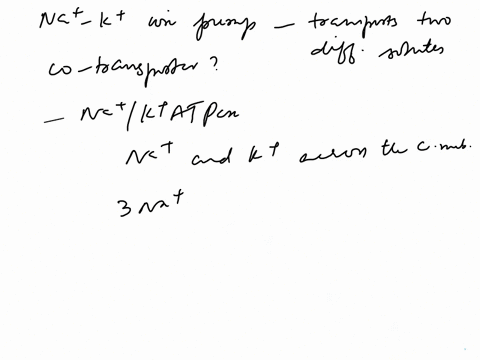 Na+-K+ ion pump — transports two
diff. solutes
co-transporter?
— Na+/K+ ATPase
Na+ and K+ across the c. mb.
3 Na+